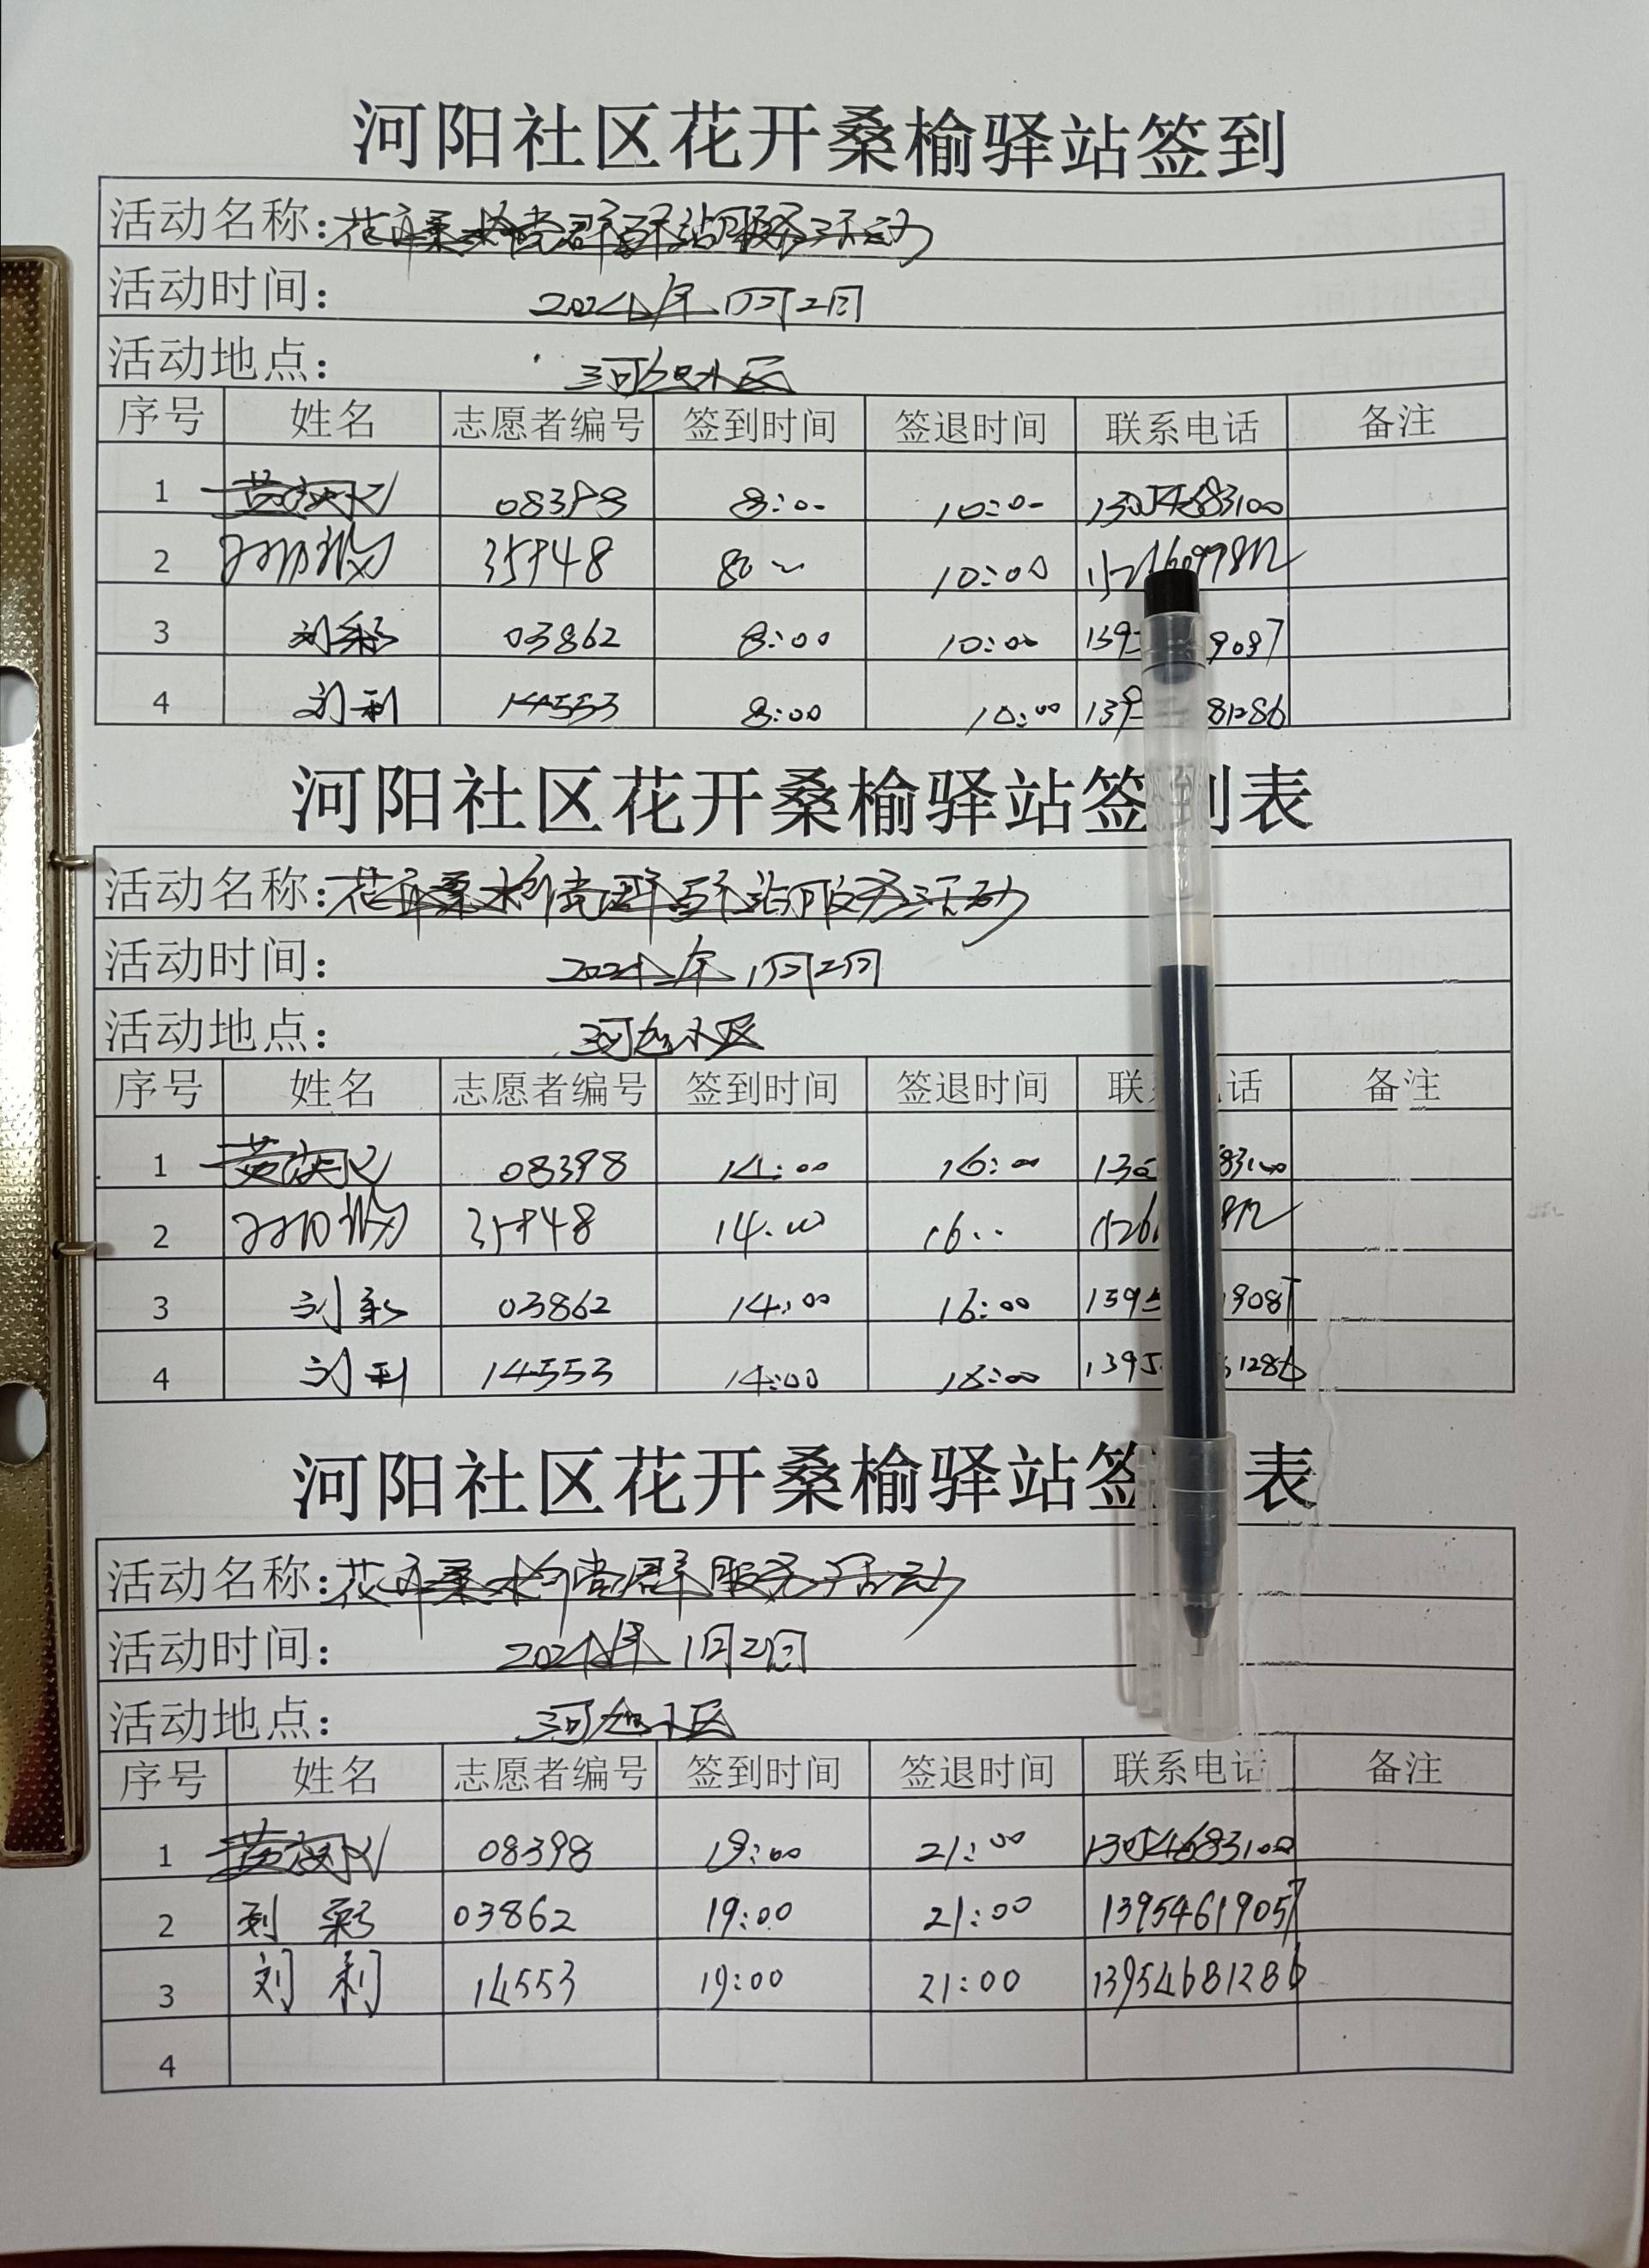 河阳社区花开桑榆驿站签到
活动名称:花开桑榆党群驿站服务活动
活动时间: 2024年1月2日
活动地点: 河旭小区
序号 姓名 志愿者编号 签到时间 签退时间 联系电话 备注
1 08398 8:00 10:00 13054683100
2 35948 8:00 10:00
3 刘彩 03862 8:00 10:00
4 刘利 14553 8:00 10:00
河阳社区花开桑榆驿站签到表
活动名称:花开桑榆党群驿站服务活动
活动时间: 2024年1月2日
活动地点: 河旭小区
序号 姓名 志愿者编号 签到时间 签退时间 联 话 备注
1 08398 14:00 16:00
2 35948 14:00 16:00
3 刘彩 03862 14:00 16:00
4 刘利 14553 14:00 16:00
河阳社区花开桑榆驿站签 表
活动名称:花开桑榆党群服务活动
活动时间: 2024年1月2日
活动地点: 河旭小区
序号 姓名 志愿者编号 签到时间 签退时间 联系电话 备注
1 08398 19:00 21:00 13054683100
2 刘彩 03862 19:00 21:00 13954619057
3 刘利 14553 19:00 21:00 13954681286
4